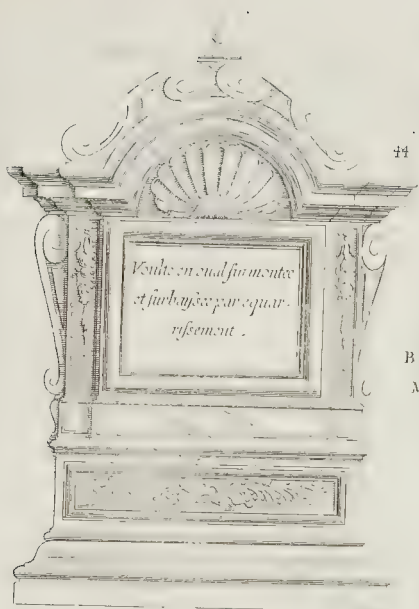 44
Voulte en oual surmontée
et surbaysée par equar-
rissement .
B